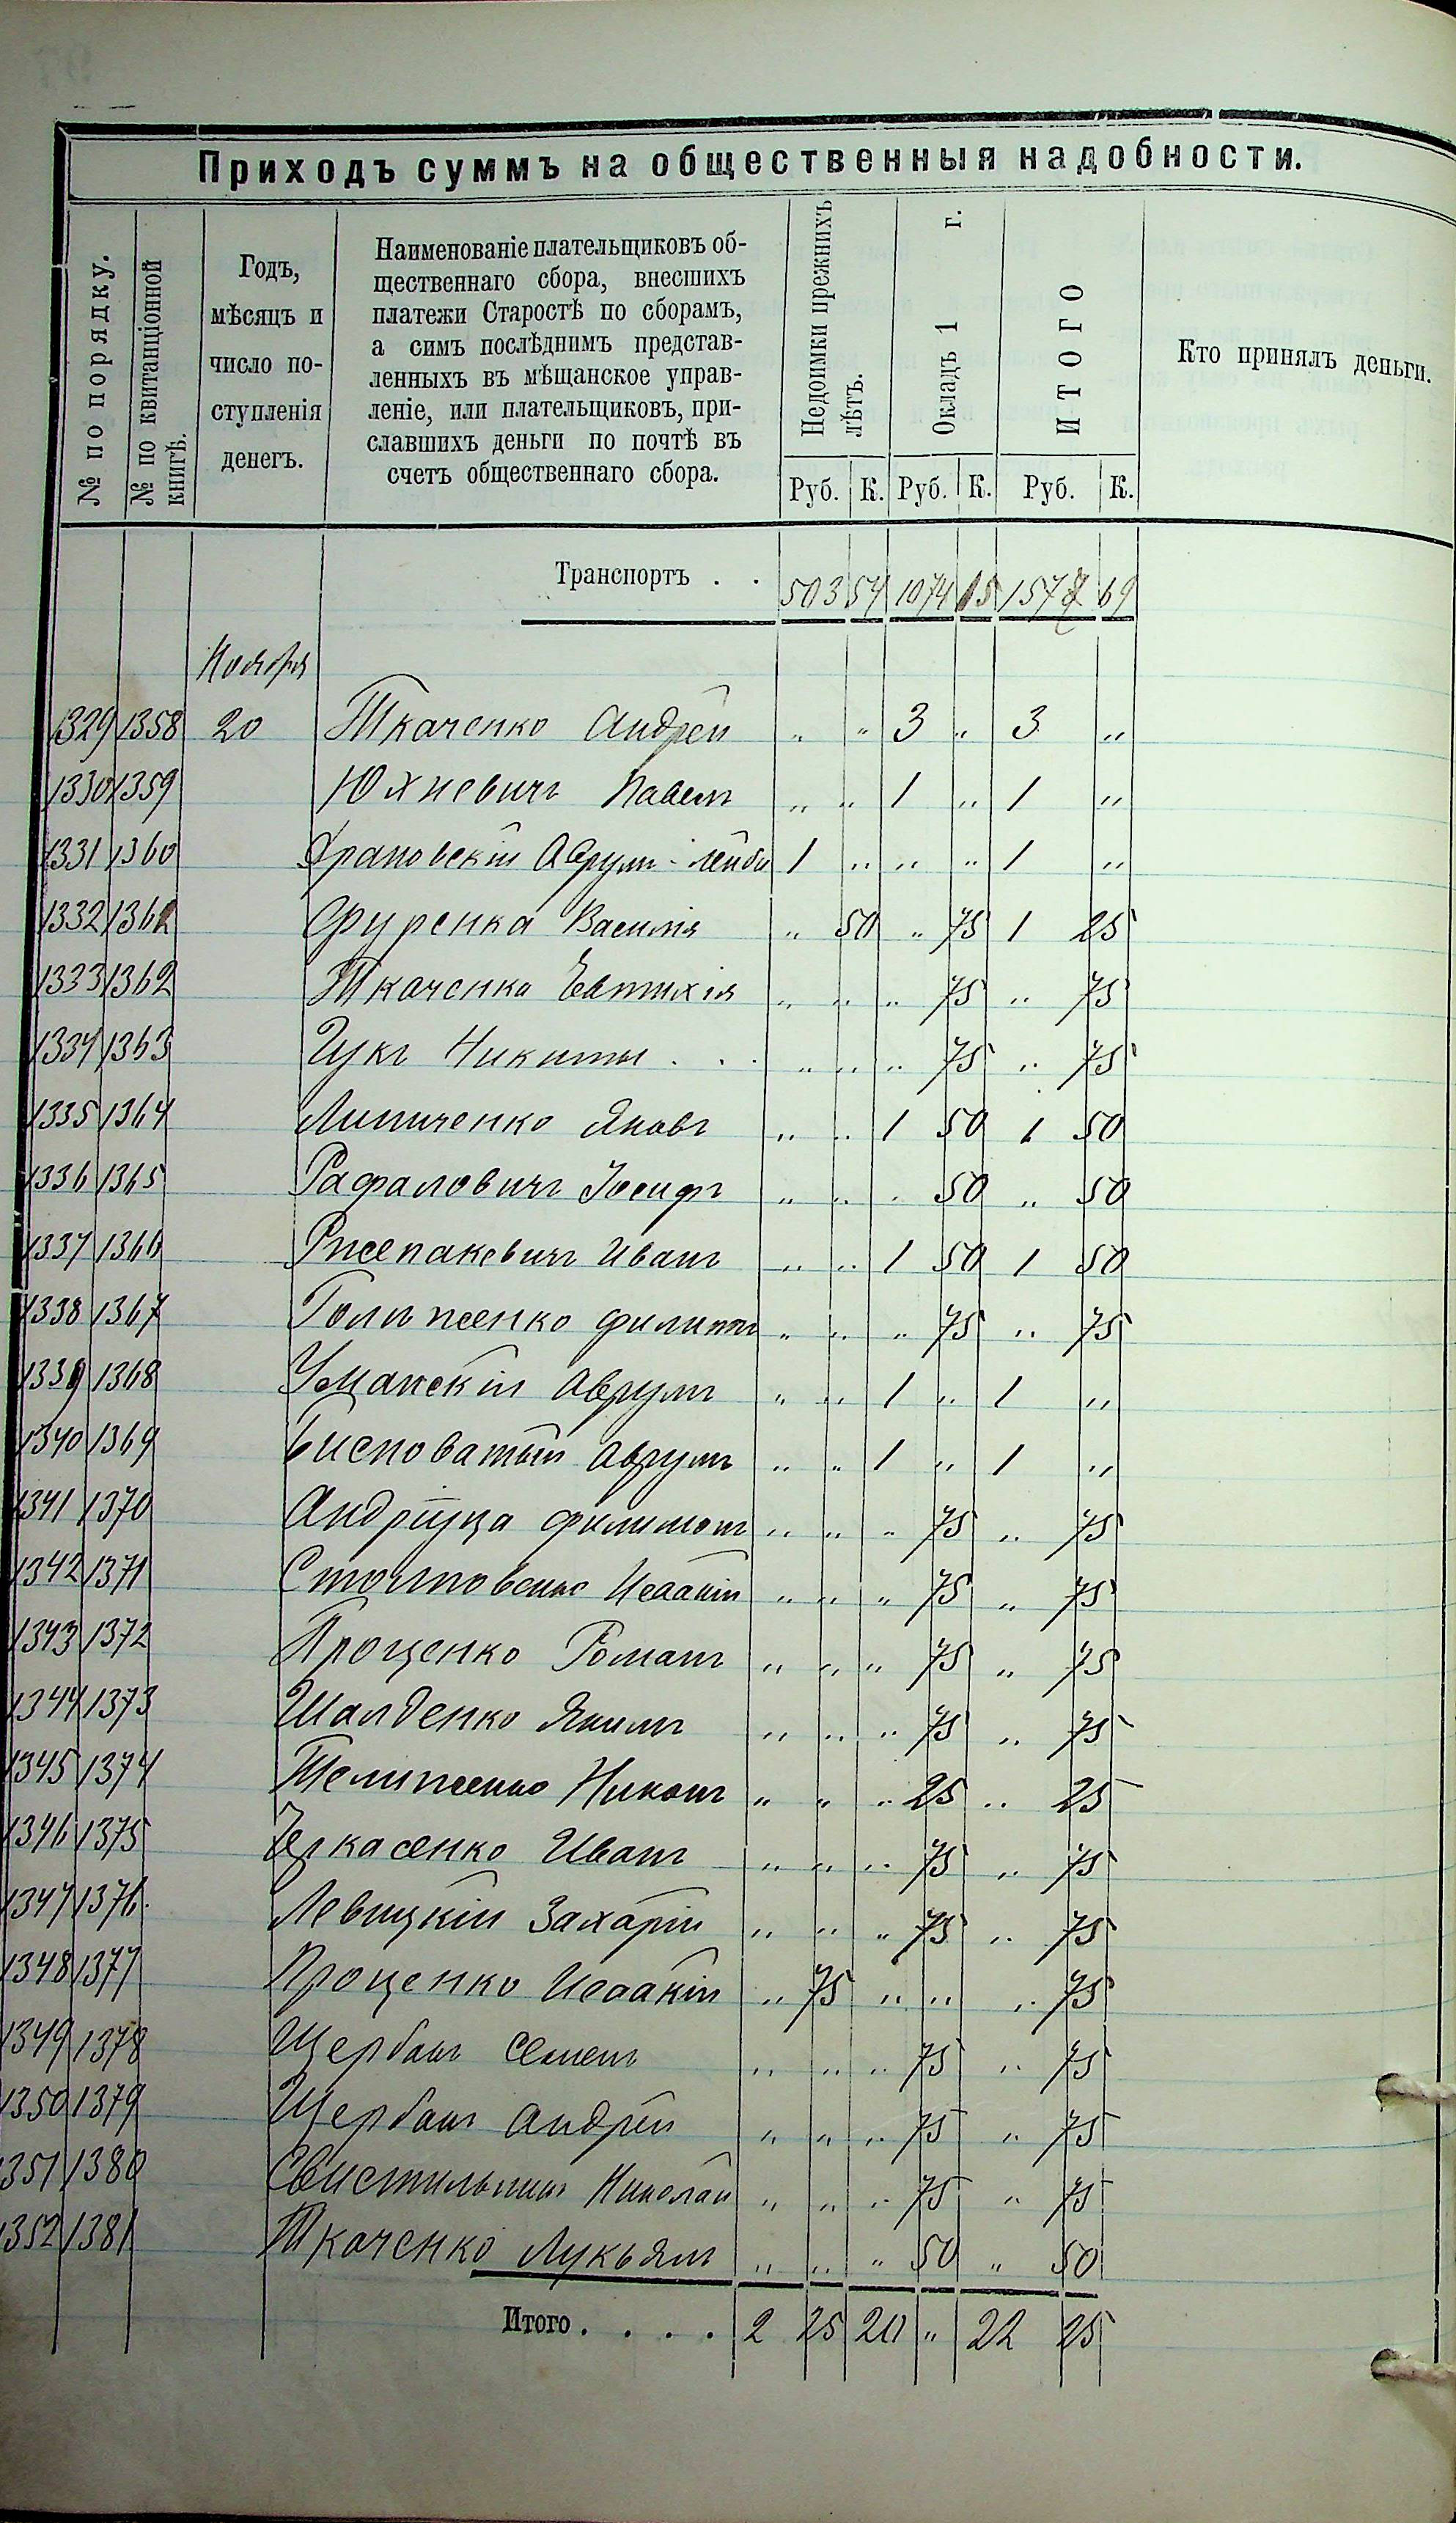 Приходъ суммъ на общественныя надобности.
№ по порядку.
№ по квитанціонной
книгѣ.
Годъ,
мѣсяцъ и
число по-
ступленія
денегъ.
Наименованіе плательщиковъ об-
щественнаго сбора, внесшихъ
платежи Старостѣ по сборамъ,
а симъ послѣднимъ представ-
ленныхъ въ мѣщанское управ-
леніе, или плательщиковъ, при-
славшихъ деньги по почтѣ въ
счетъ общественнаго сбора.
Недоимки прежнихъ
лѣтъ.
Окладъ 1 г.
ИТОГО
Кто принялъ деньги.
Руб. К. Руб. К. Руб. К.
Транспортъ . . 503 54 1074 15 1577 69
Ноября
1329 1358 20 Ткаченко Андрей „ „ 3 „ 3 „
1330 1359 Юхневичъ Павелъ „ „ 1 „ 1 „
1331 1360 Аврумъ-Лейба 1 „ „ „ 1 „
1332 1361 Фуренка Василія „ 50 „ 75 1 25
1333 1362 Ткаченка Евтихія „ „ „ 75 „ 75
1334 1363 Никиты . . „ „ „ 75 „ 75
1335 1364 Липиченко Яковъ „ „ 1 50 1 50
1336 1365 Рафаловичъ Іосифъ „ „ „ 50 „ 50
1337 1366 Ржепакевичъ Иванъ „ „ 1 50 1 50
1338 1367 Филиппъ „ „ „ 75 „ 75
1339 1368 Уманскій Аврумъ „ „ 1 „ 1 „
1340 1369 Аврумъ „ „ 1 „ 1 „
1341 1370 Андрійца Филимонъ „ „ „ 75 „ 75
1342 1371 Исаакій „ „ „ 75 „ 75
1343 1372 Проценко Романъ „ „ „ 75 „ 75
1344 1373 Шалденко Якимъ „ „ „ 75 „ 75
1345 1374 Телиженко Никонъ „ „ „ 25 „ 25
1346 1375 Черкасенко Иванъ „ „ „ 75 „ 75
1347 1376 Левицкій Захарій „ „ „ 75 „ 75
1348 1377 Проценко Исаакій „ 75 „ „ „ 75
1349 1378 Щербань Семенъ „ „ „ 75 „ 75
1350 1379 Щербань Андрей „ „ „ 75 „ 75
1351 1380 Свистильникъ Николай „ „ „ 75 „ 75
1352 1381 Ткаченко Лукьянъ „ „ „ 50 „ 50
Итого . . . . 2 25 20 „ 22 25